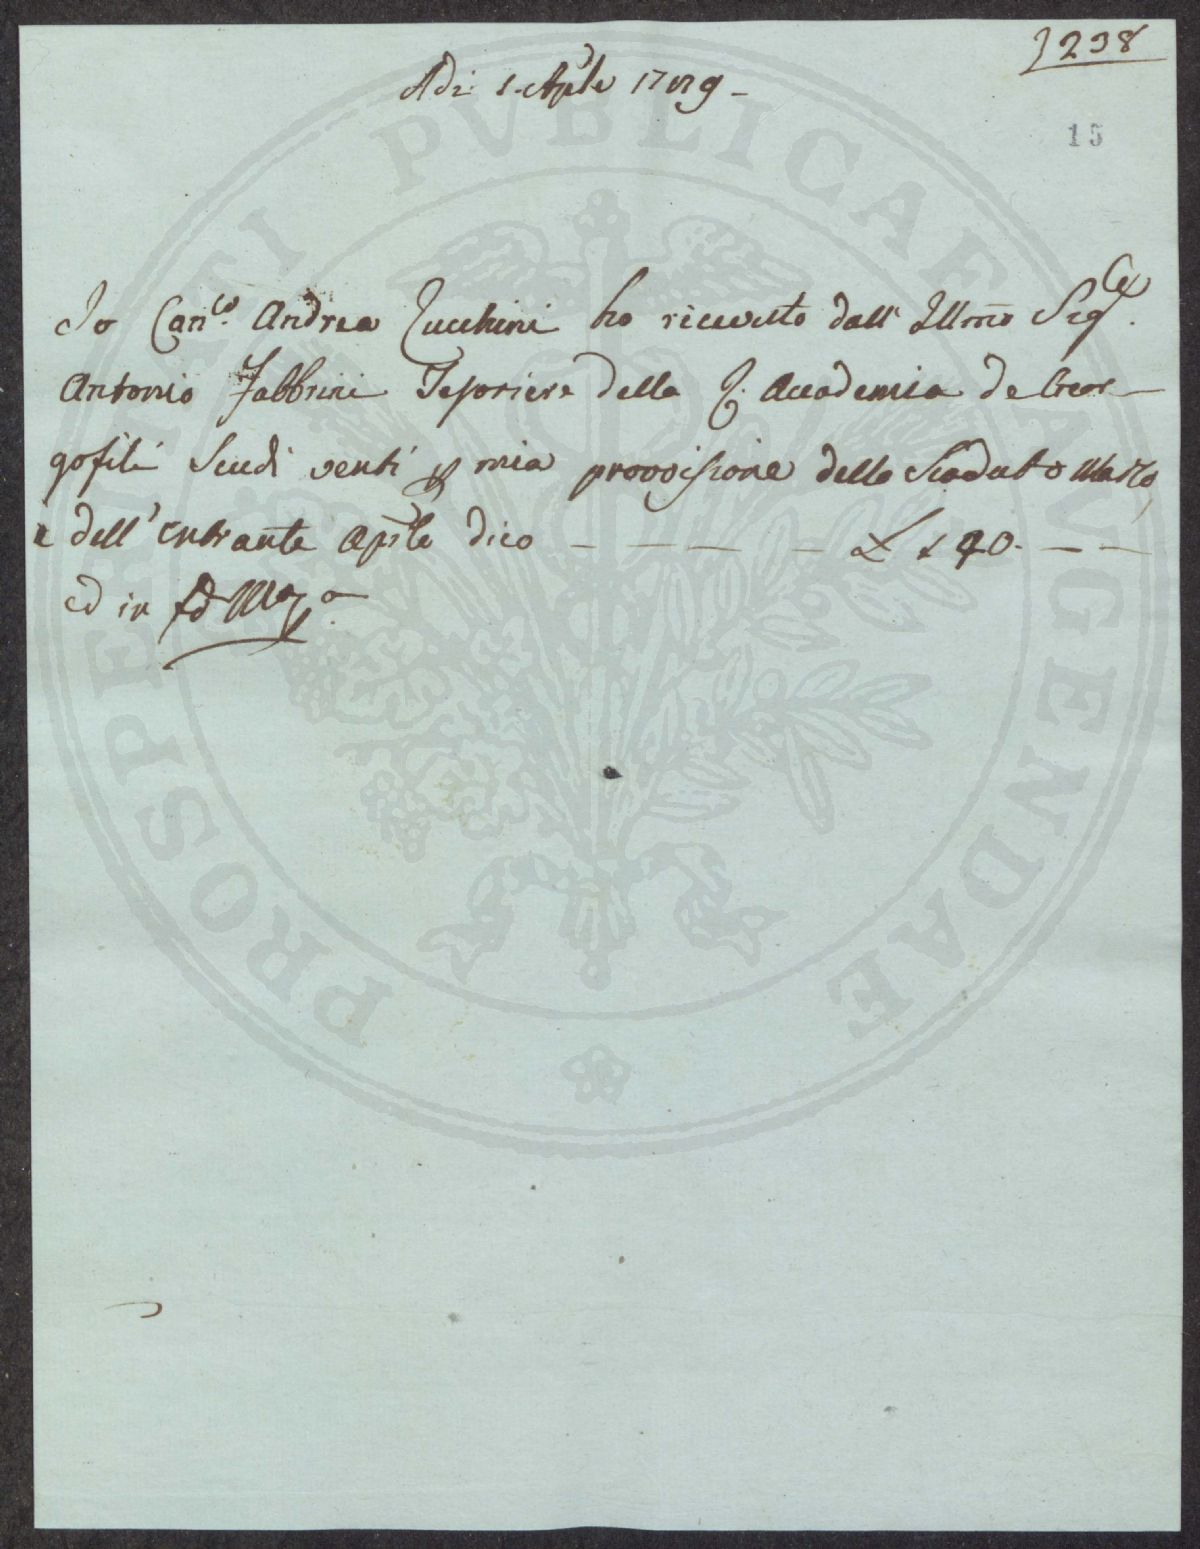 238
Adi 1. Aprle 1789
15
Io Can.co Andrea Zucchini ho ricevuto dall' Illmo Sig.
Antonio Fabbrini Tesoriere della R. Accademia de Geor-
gofili Scudi venti mia provvisione dello Scaduto Marzo,
e dell' entrante Aprle dico - - - - £ 140. - -
ed in
PROSPERITATI PVBLICAE AVGENDAE